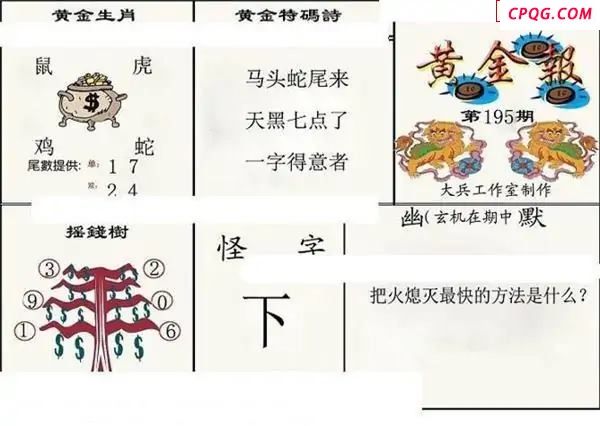 CPQG.COM
黄金生肖
鼠 虎
$
鸡 蛇
尾數提供: 单: 1 7
双: 2 4
黄金特碼詩
马头蛇尾来
天黑七点了
一字得意者
黄金報
第195期
大兵工作室制作
摇錢樹
③ ②
⑨ ⓪
① ⑥
$ $ $ $ $ $ $ $ $ $
怪 字
下
幽(玄机在期中)默
把火熄灭最快的方法是什么?